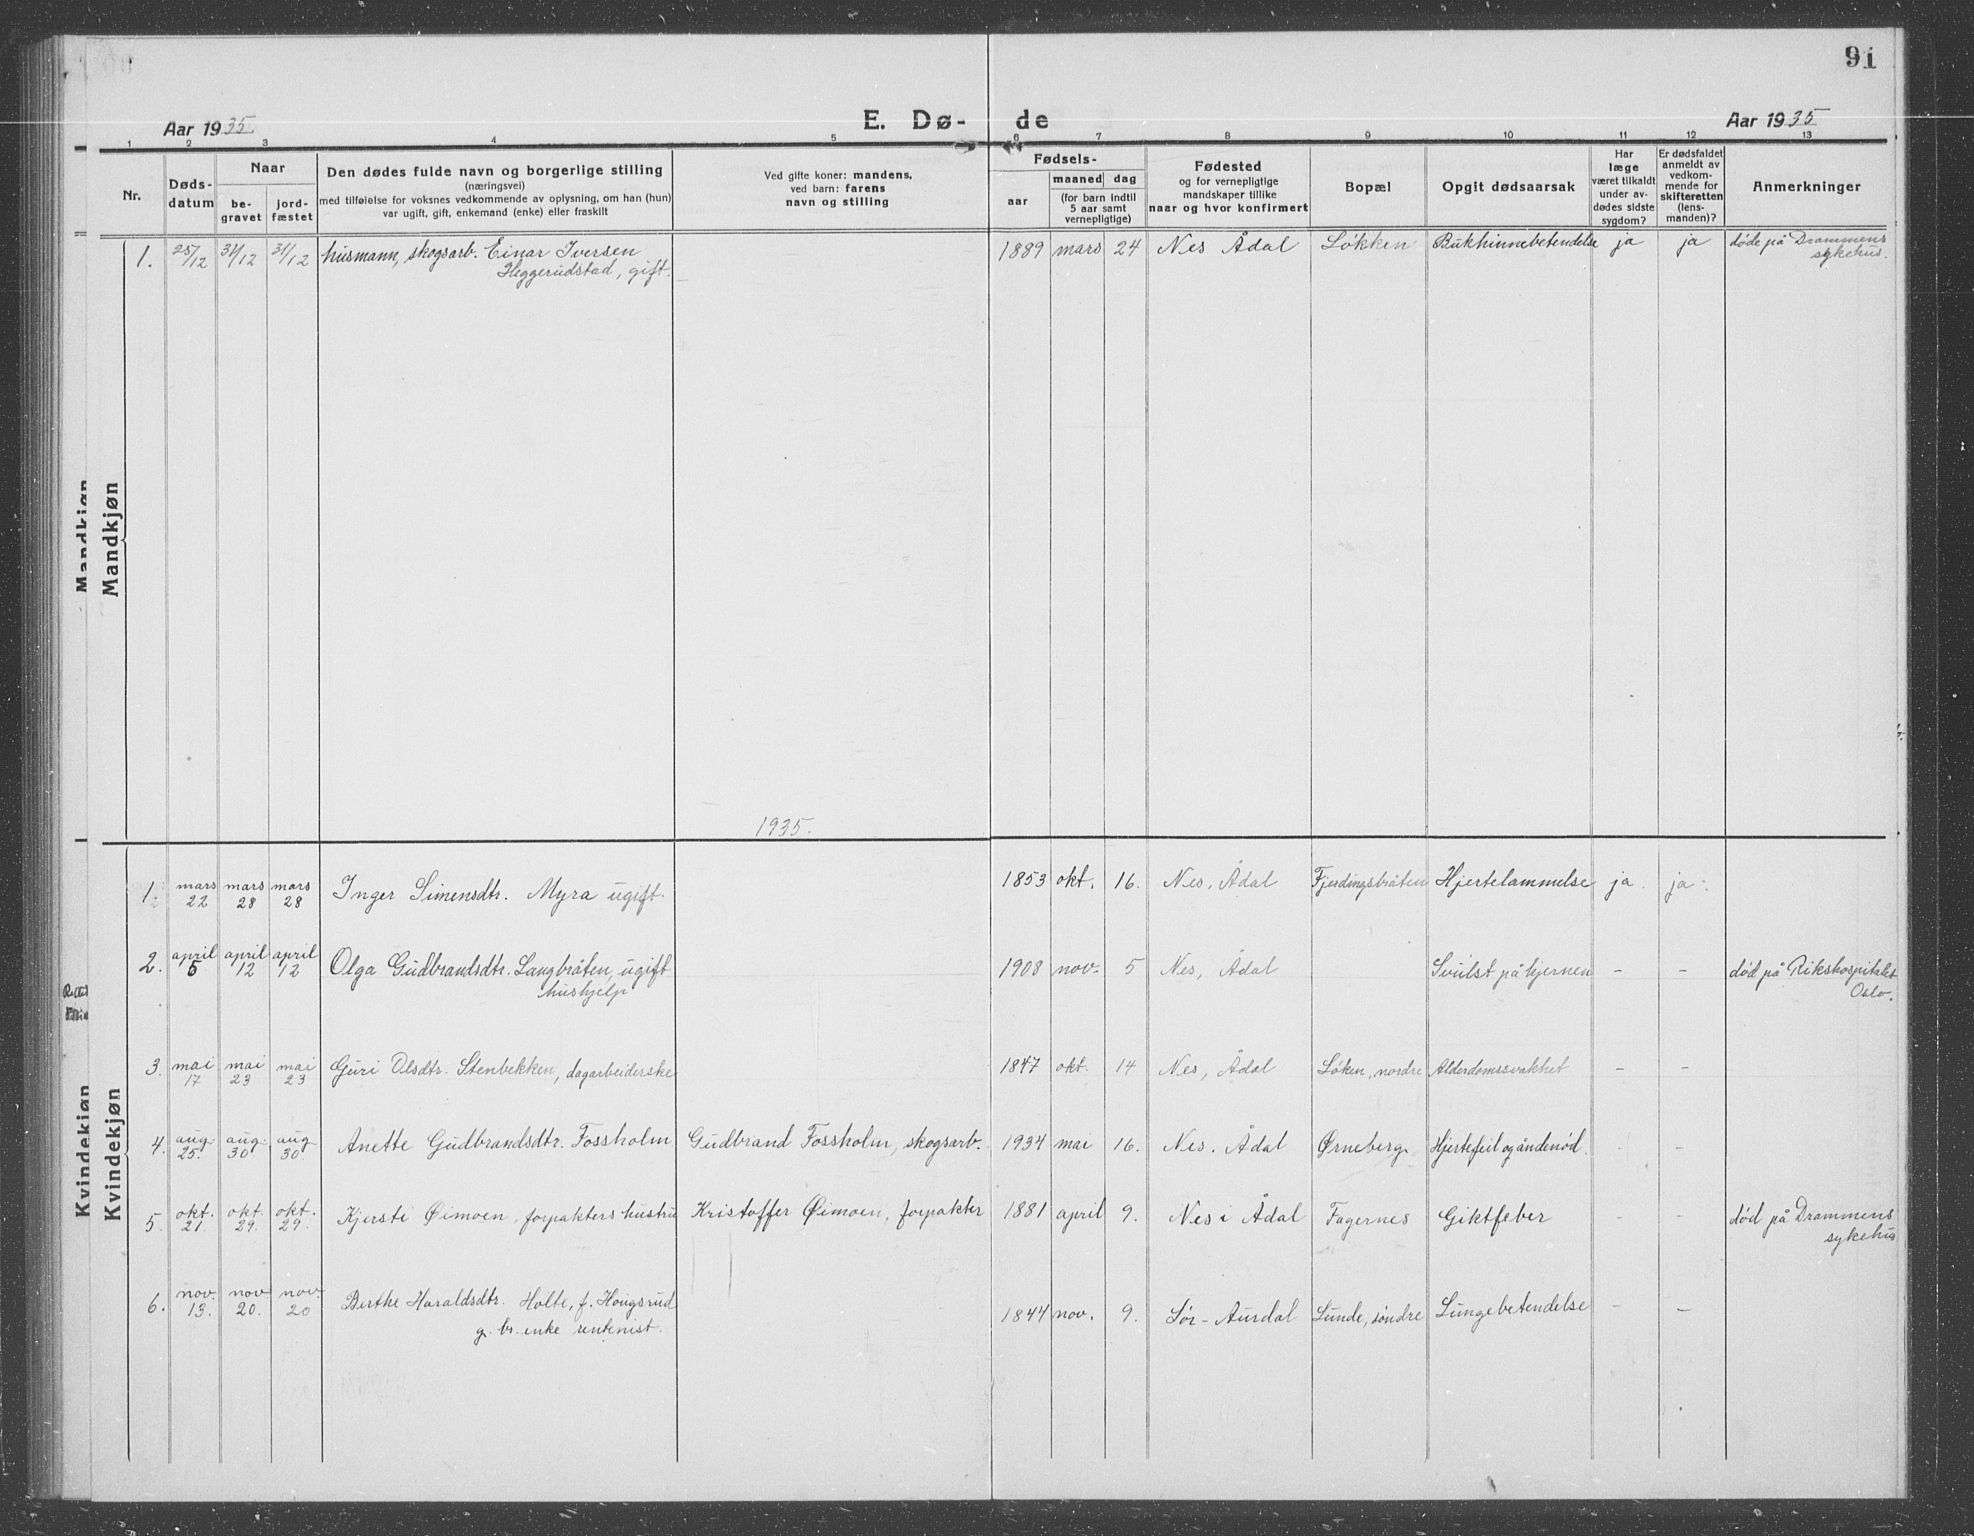 91
Aar 1935 E. Dø- de Aar 1935
1 2 3 4 5 6 7 8 9 10 11 12 13
Nr.
Døds-
datum
Naar
be-
gravet
jord-
fæstet
Den dødes fulde navn og borgerlige stilling
(næringsvei)
med tilføielse for voksnes vedkommende av oplysning, om han (hun)
var ugift, gift, enkemand (enke) eller fraskilt
Ved gifte koner: mandens,
ved barn: farens
navn og stilling
Fødsels-
aar
maaned dag
(for barn indtil
5 aar samt
vernepligtige)
Fødested
og for vernepligtige
mandskaper tillike
naar og hvor konfirmert
Bopæl
Opgit dødsaarsak
Har
læge
været tilkaldt
under av-
dødes sidste
sygdom?
Er dødsfaldet
anmeldt av
vedkom-
mende for
skifteretten
(lens-
manden)?
Anmerkninger
Mandkjøn
Mandkjøn
1. 25/12 31/12 31/12 husmann, skogsarb. Einar Iversen 1889 mars 24 Nes Ådal Løkken Bukhinnebetendelse ja ja døde på Drammens
Heggerudstad, gift. sykehus.
1935.
Kvindekjøn
Kvindekjøn
1. mars mars mars Inger Simensdtr. Myra ugift. 1853 okt. 16. Nes, Ådal Fjerdingsbråten Hjertelammelse ja. ja.
22 28 28
2. april april april Olga Gudbrandsdtr. Langbråten, ugift 1908 nov. 5 Nes, Ådal Svulst på hjernen - - død på Rikshospitalet
5 12 12 hushjelp Oslo.
3. mai mai mai Guri Olsdtr. Stenbekken, dagarbeiderske 1847 okt. 14 Nes, Ådal Løken, nordre Alderdomssvakhet - -
17 23 23
4. aug. aug. aug Anette Gudbrandsdtr. Fossholm Gudbrand Fossholm, skogsarb. 1934 mai 16. Nes. Ådal Ørneberg. Hjertefeil og åndenød. - -
25. 30. 30.
5. okt. okt. okt. Kjersti Øimoen, forpakters hustru Kristoffer Øimoen, forpakter 1881 april 9. Nes i Ådal Fagernes Giktfeber - - død på Drammens
21. 29. 29. sykehus
6. nov. nov nov Berthe Haraldsdtr. Holte, f. Hougsrud 1844 nov. 9. Sør-Aurdal Lunde, søndre Lungebetendelse - -
13. 20. 20 g. br. enke rentenist.